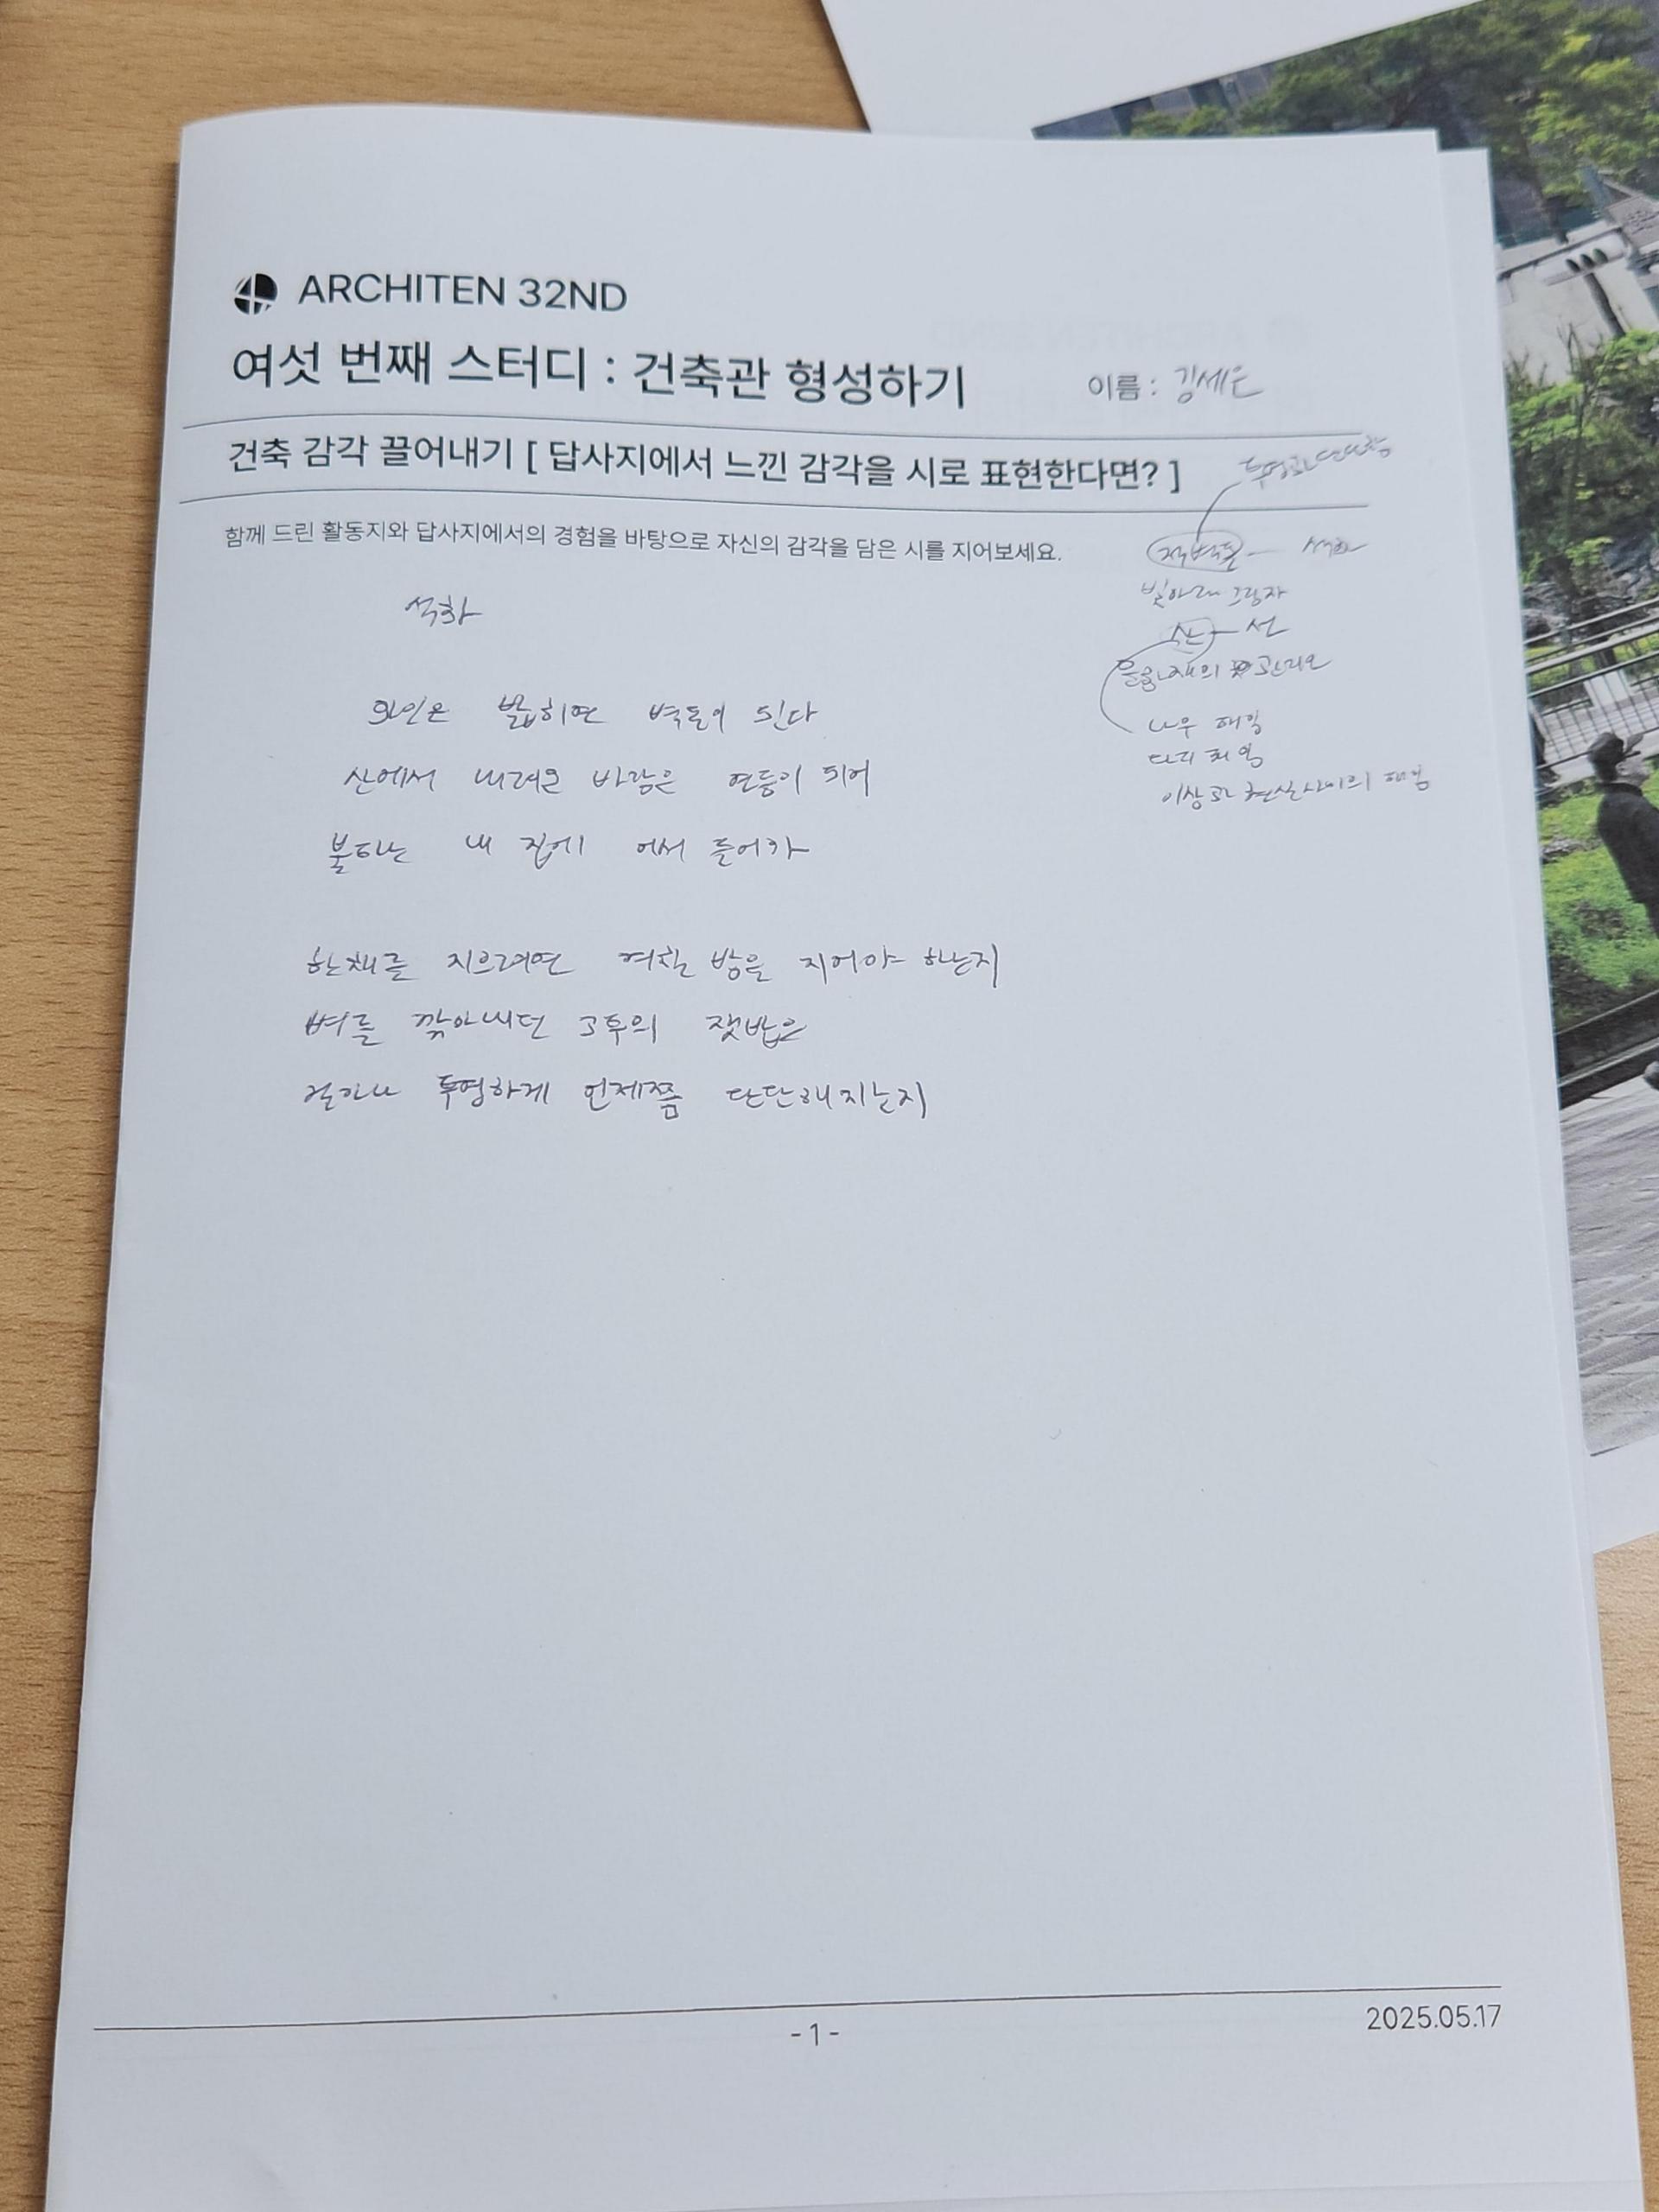 ARCHITEN 32ND
여섯 번째 스터디 : 건축관 형성하기
이름 : 김세은
건축 감각 끌어내기 [ 답사지에서 느낀 감각을 시로 표현한다면? ]
투명과 단단함
함께 드린 활동지와 답사지에서의 경험을 바탕으로 자신의 감각을 담은 시를 지어보세요.
적벽돌 — 석화
빛 아래 그림자
산 — 선
나무 해임
다리
이상과 현실사이의 해임
석화
와인은 밟히면 벽돌이 된다
산에서 내려온 바람은 연등이 되어
불타는 내 집에 어서 들어가
한채를 지으려면 며칠 밤을 지어야 하는지
벼를 깎아내던 그 후의 잿밥은
얼마나 투명하게 언제쯤 단단해지는지
- 1 -
2025.05.17